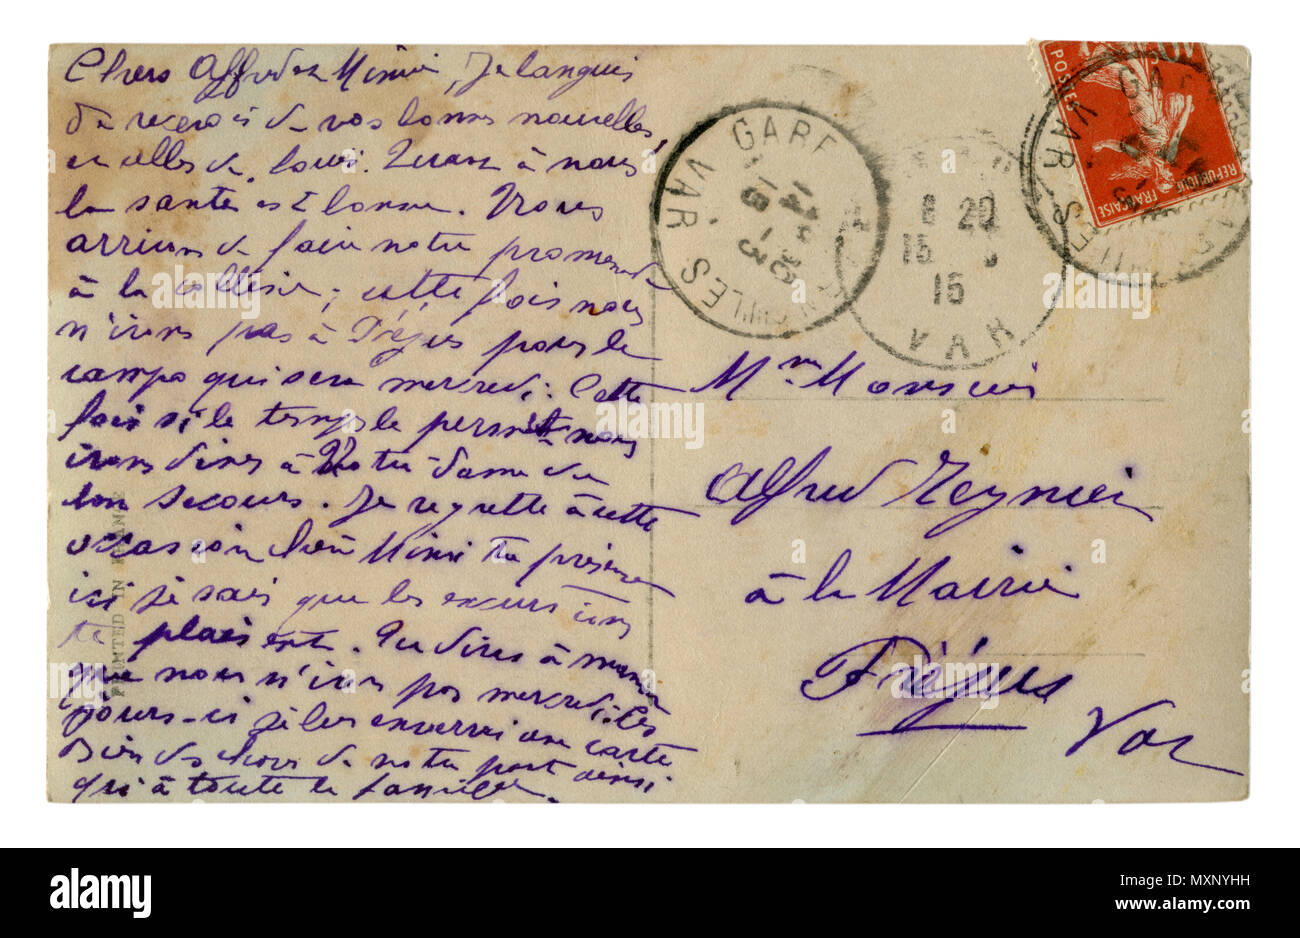 Chers Alfred et Mimi, Je languis
de recevoir de vos bonnes nouvelles,
et celles de Louis. Quant à nous
la santé est bonne. Nous
arrivons de faire notre promenade
à la colline; cette fois nous
n'irons pas à Fréjus pour le
campo qui sera mercredi. Cette
fois si le temps le permet nous
irons dires à Notre-dame du
bon secours. Je regrette à cette
occasion chère Mimi ta présence
ici je sais que les excursions
te plaisent. Tu diras à maman
que nous n'irons pas mercredi. Ces
jours-ci je les enverrai une carte
Bien des choses de notre part ainsi
qu'à toute la famille.
PRINTED IN FRANCE
GARE
VAR
GARE
VAR
8 20
15
15
VAR
POSTES
REPUBLIQUE FRANÇAISE
10
Mr Monsieur
Alfred Reynier
à la Mairie
Fréjus
Var
alamy
Image ID: MXNYHH
www.alamy.com